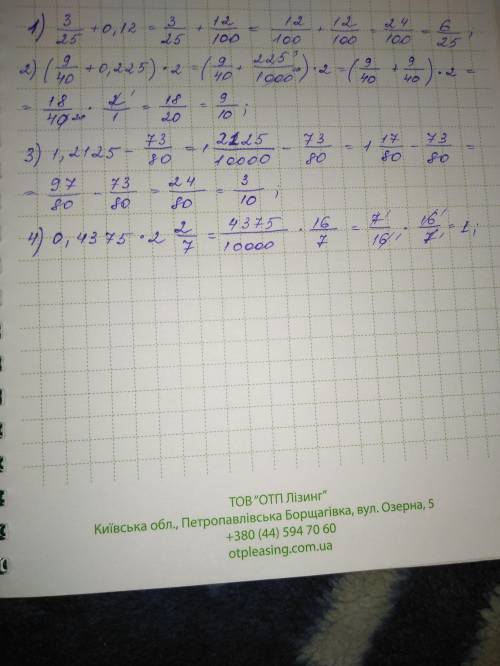 1) 3/25 + 0,12 = 3/25 + 12/100 = 12/100 + 12/100 = 24/100 = 6/25;
2) (9/40 + 0,225) · 2 = (9/40 + 225/1000) · 2 = (9/40 + 9/40) · 2 =
= 18/40 20 · 2 1/1 = 18/20 = 9/10;
3) 1,2125 - 73/80 = 1 2125/10000 - 73/80 = 1 17/80 - 73/80 =
= 97/80 - 73/80 = 24/80 = 3/10;
4) 0,4375 · 2 2/7 = 4375/10000 · 16/7 = 7 1/16 1 · 16 1/7 1 = 1;
ТОВ "ОТП Лізинг"
Київська обл., Петропавлівська Борщагівка, вул. Озерна, 5
+380 (44) 594 70 60
otpleasing.com.ua